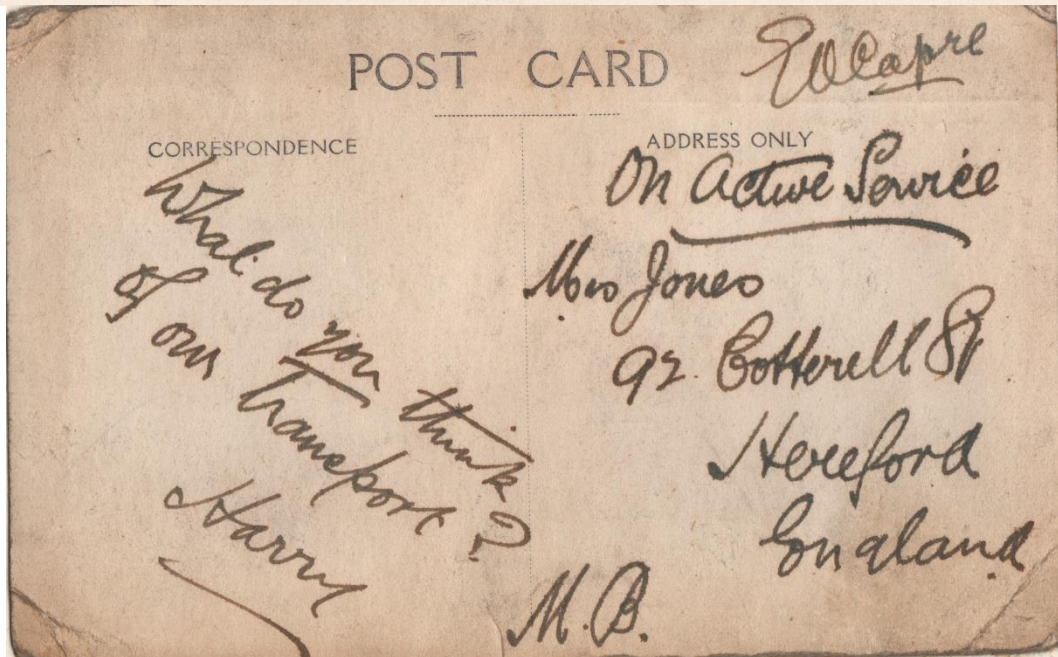 POST CARD
CORRESPONDENCE
What do you think
of our transport?
Harry
ADDRESS ONLY
On Active Service
Mrs Jones
92. Cotterell St
Hereford
England
M.B.